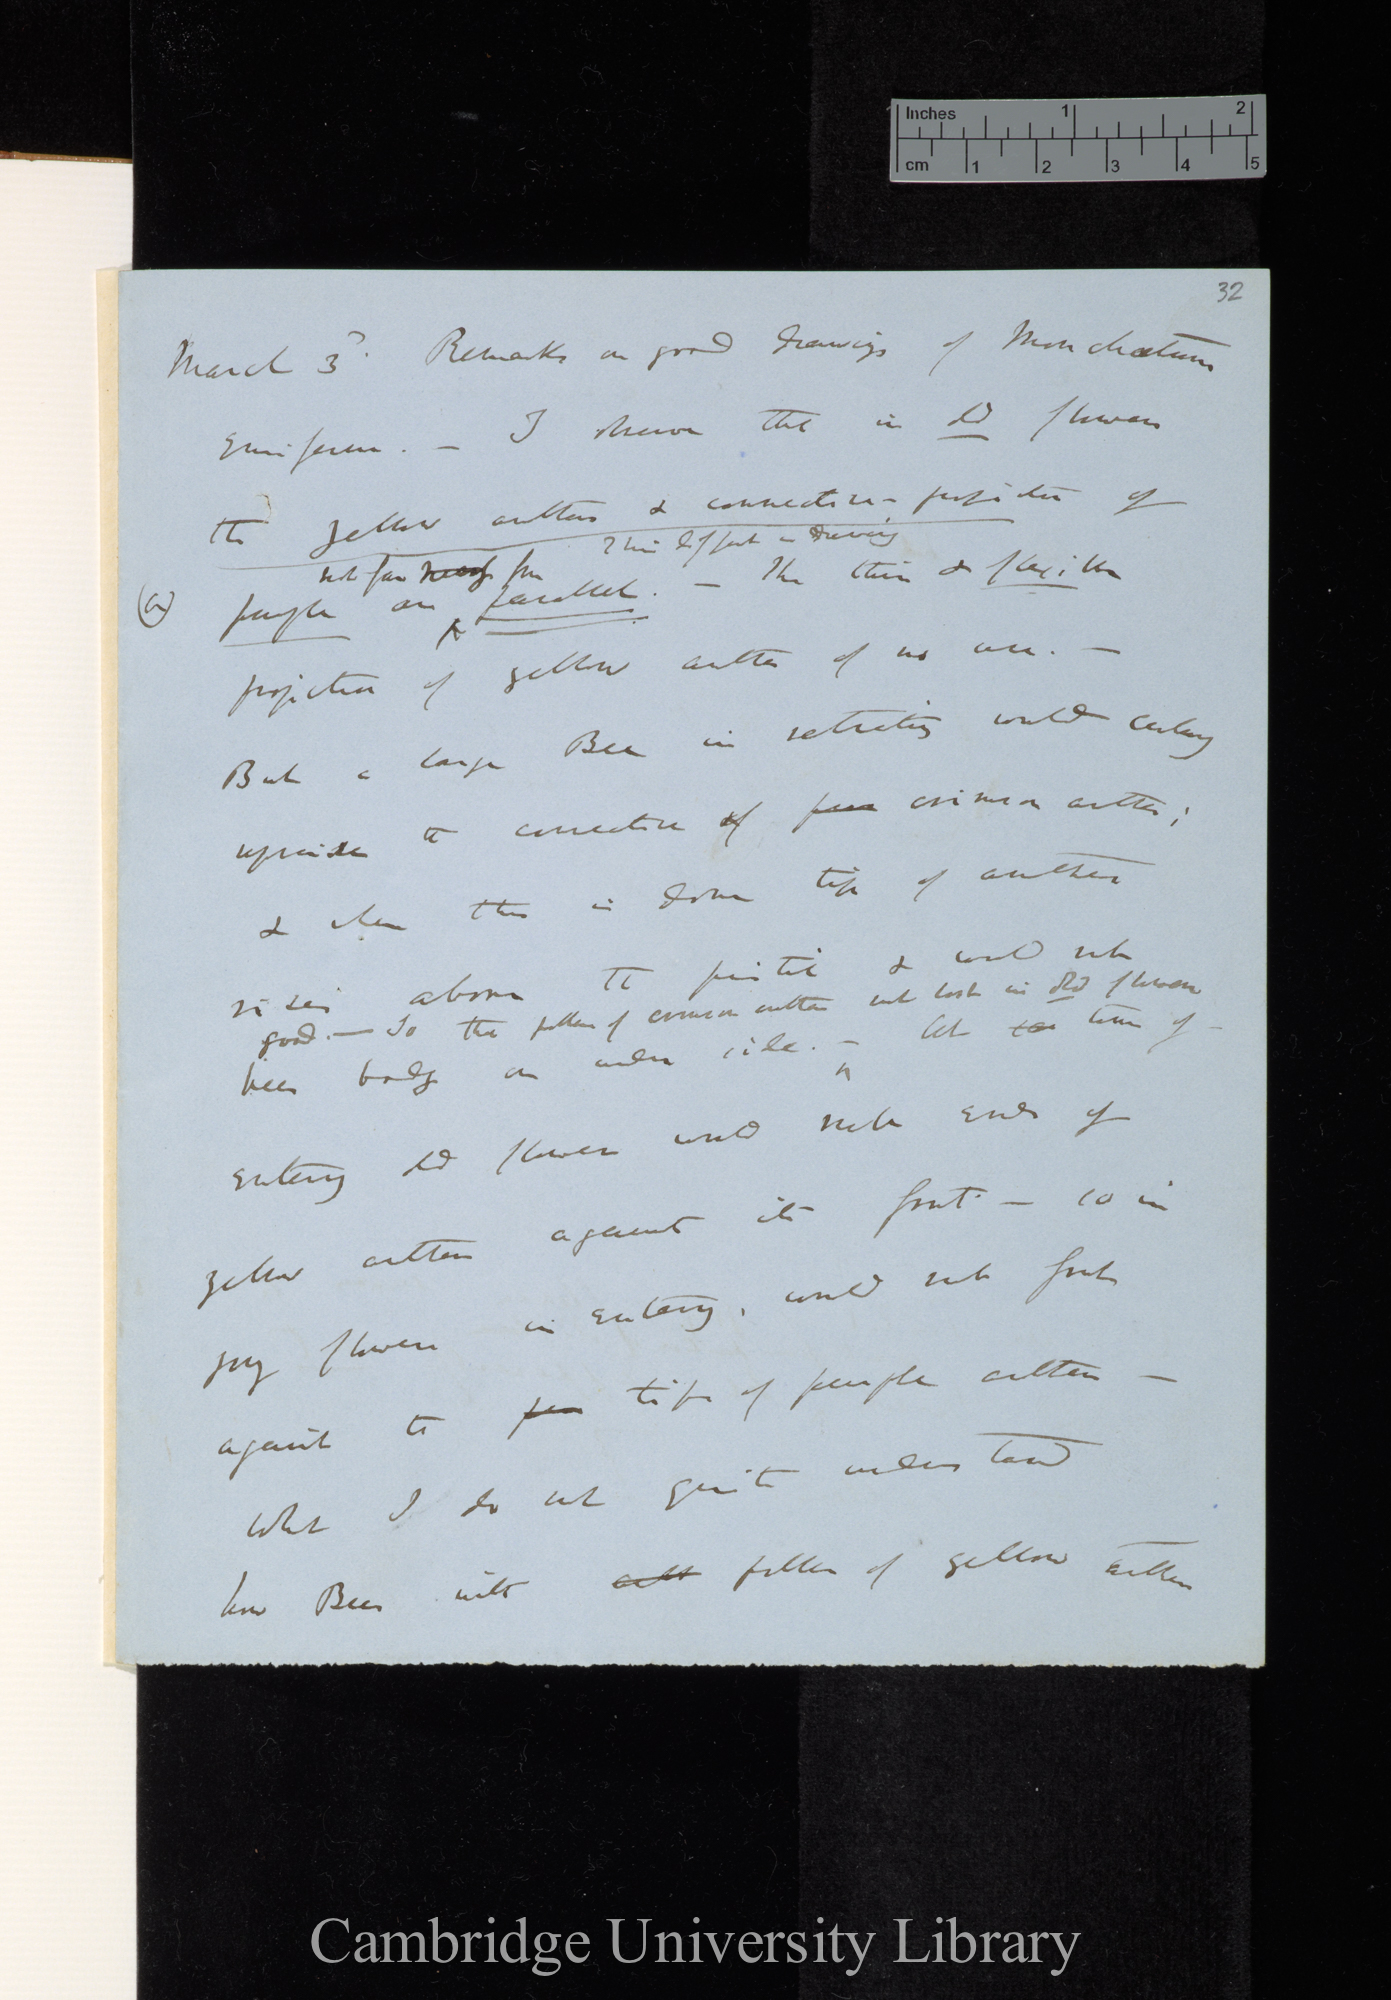 Inches 1 2
cm 1 2 3 4 5
32
March 3d. Remarks on good drawings of Monochaetum
ensiferum. — I observe that in old flowers
the yellow anthers & connective-projection of
This different in drawing
not far from
(a) purple are parallel. — The thin & flexible
projection of yellow anther of no use. —
But a large Bee in retreating would certainly
upraise the connective of crimson anthers;
& when this is done tip of anther
rises above the pistil & would rub
good. — So the pollen of crimson anther not lost in old flowers
bees body on under side. — But time of
entering old flower would rub ends of
yellow anthers against its front — so in
yng flowers in entering, would rub front
against the tips of purple anthers —
What I do not quite understand
how Bees with pollen of yellow anthers
Cambridge University Library